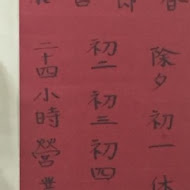 春節
除夕初一休
初二初三初四
二十四小時營業